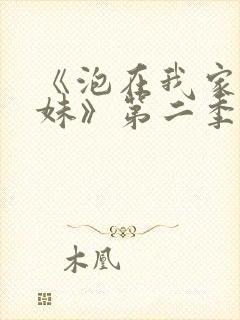 《泡在我家
妹》第二季
木凰